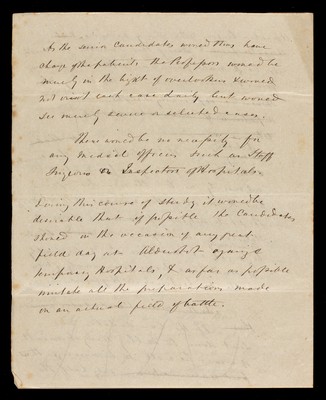 As the senior Candidates would thus have
charge of the patients the Professors would be
merely in the light of overlookers & would
not visit each case daily but would
see merely some or selected cases.
There would be no necessity for
any medical officers such as Staff
Surgeons or Inspectors of Hospitals.
During this course of study it would be
desirable that if possible the Candidates
should on the occasion of any great
field day at Aldershot organize
temporary Hospitals, & as far as possible
imitate all the preparations made
on an actual field of battle.